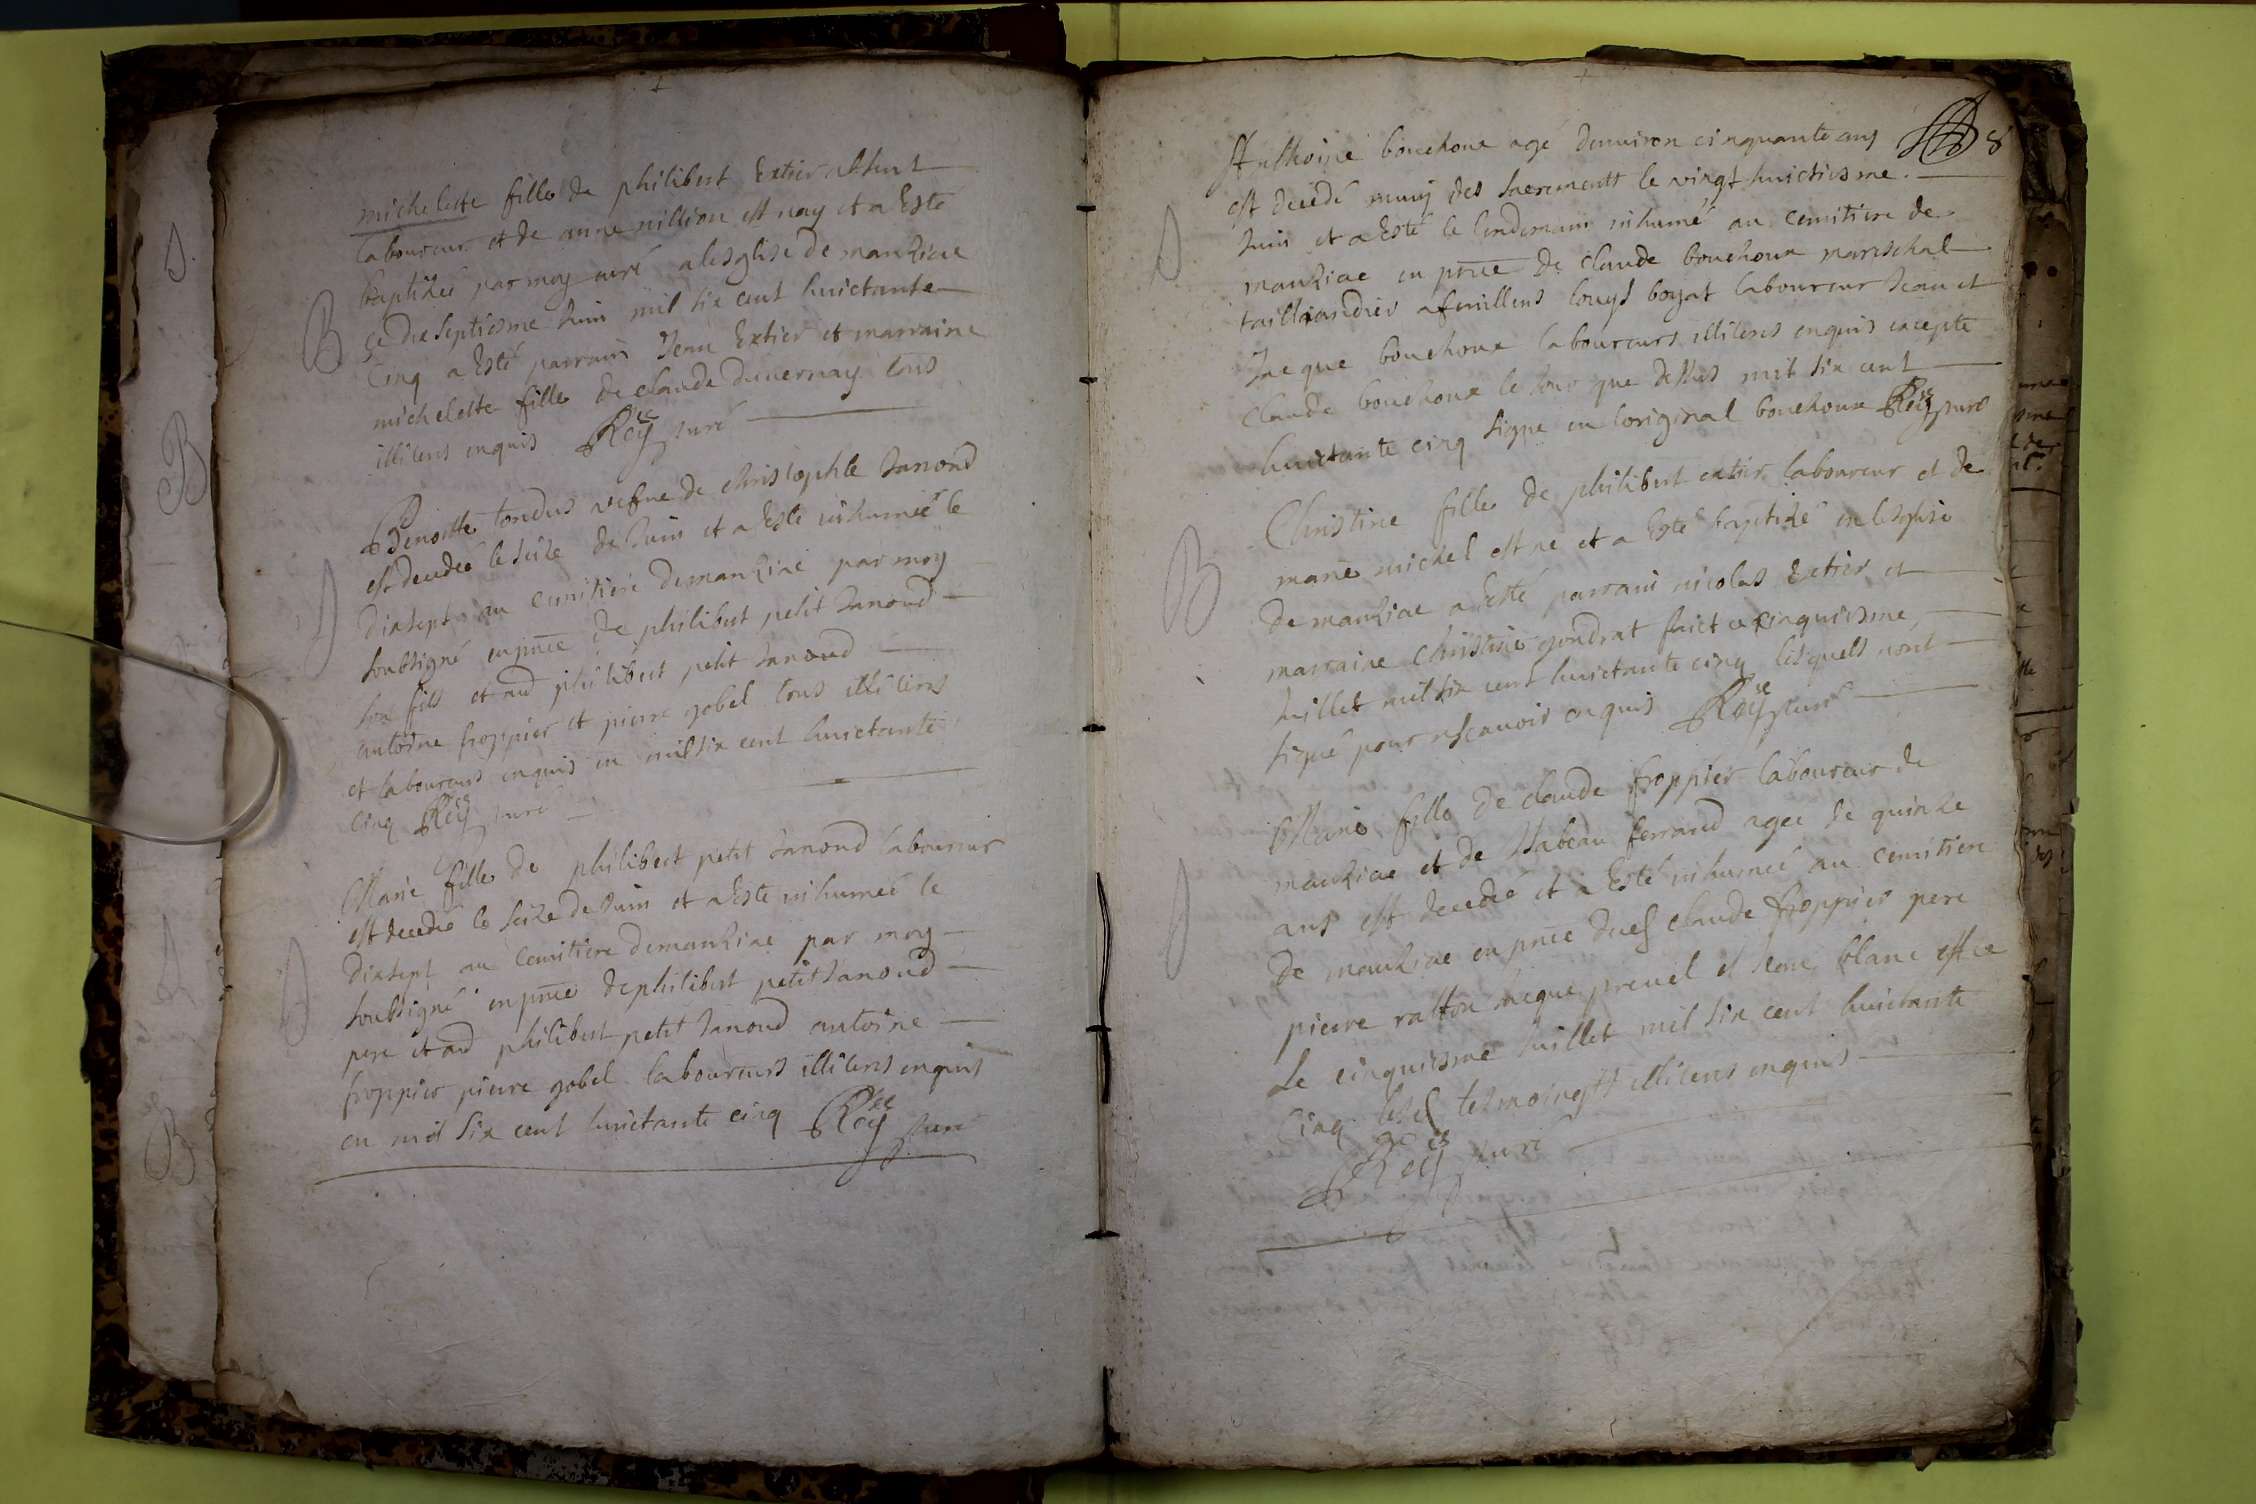 B
michelette fille de philibert Extier absent
laboureur et de anne million est nay et a Esté
baptizée par moy curé a lesglise de manziac
ce dixseptiesme Juin mil six cent huictante
cinq a Esté parrain Jean Extier et marraine
michelette fille de claude duvernay tous
illiteres enquis Rey curé
D
Benoitte tondus vefve de christophle Janoud
est decedée le seize de Juin et a Esté inhumée le
dixsept au cemitiere de manziac par moy
soubsigné en pnce de philibert petit Janoud
son fils et aud philibert petit Janoud
antoine froppier et pierre gobel tous illiteres
et laboureurs enquis en mil six cent huictante
cinq Rey curé
D
Marie fille de philibert petit Janoud laboureur
est decedée le seize de Juin et a Esté inhumée le
dixsept au cemitiere de manziac par moy
soubsigné en pnce de philibert petit Janoud
pere et aud philibert petit Janoud antoine
froppier pierre gobel laboureurs illiteres enquis
en mil six cent huictante cinq Rey curé
8
D
Anthoine bouchoux agé denviron cinquante ans
est decedé muny des sacrements le vingt huictiesme
Juin et a Esté le lendemain inhumé au cemitiere de
manziac en pnce de claude bouchoux mareschal
tailliandier a feuillens louys boyat laboureur Jean et
Jacque bouchoux laboureurs illiteres enquis excepte
claude bouchoux le Jour que dessus mil six cent
huictante cinq signe en loriginal bouchoux Rey curé
B
Christine fille de philibert extier laboureur et de
marie michel est né et a Esté baptizé en lesglise
de manziac a Esté parrain nicolas Extier et
marraine christine gondrat faict ce cinquiesme
Juillet mil six cent huictante cinq lesquels nont
signé pour ne scavoir enquis Rey curé
D
Marie fille de claude froppier laboureur de
manziac et de Isabeau ferraud agee de quinze
ans est decedée et a Esté inhumée au cemitiere
de manziac en pnce dud claude froppier pere
pierre ratton Jacque preuel et Jean blanc et ce
Le cinquiesme Juillet mil six cent huictante
cinq lesd tesmoings illiteres enquis
Rey curé